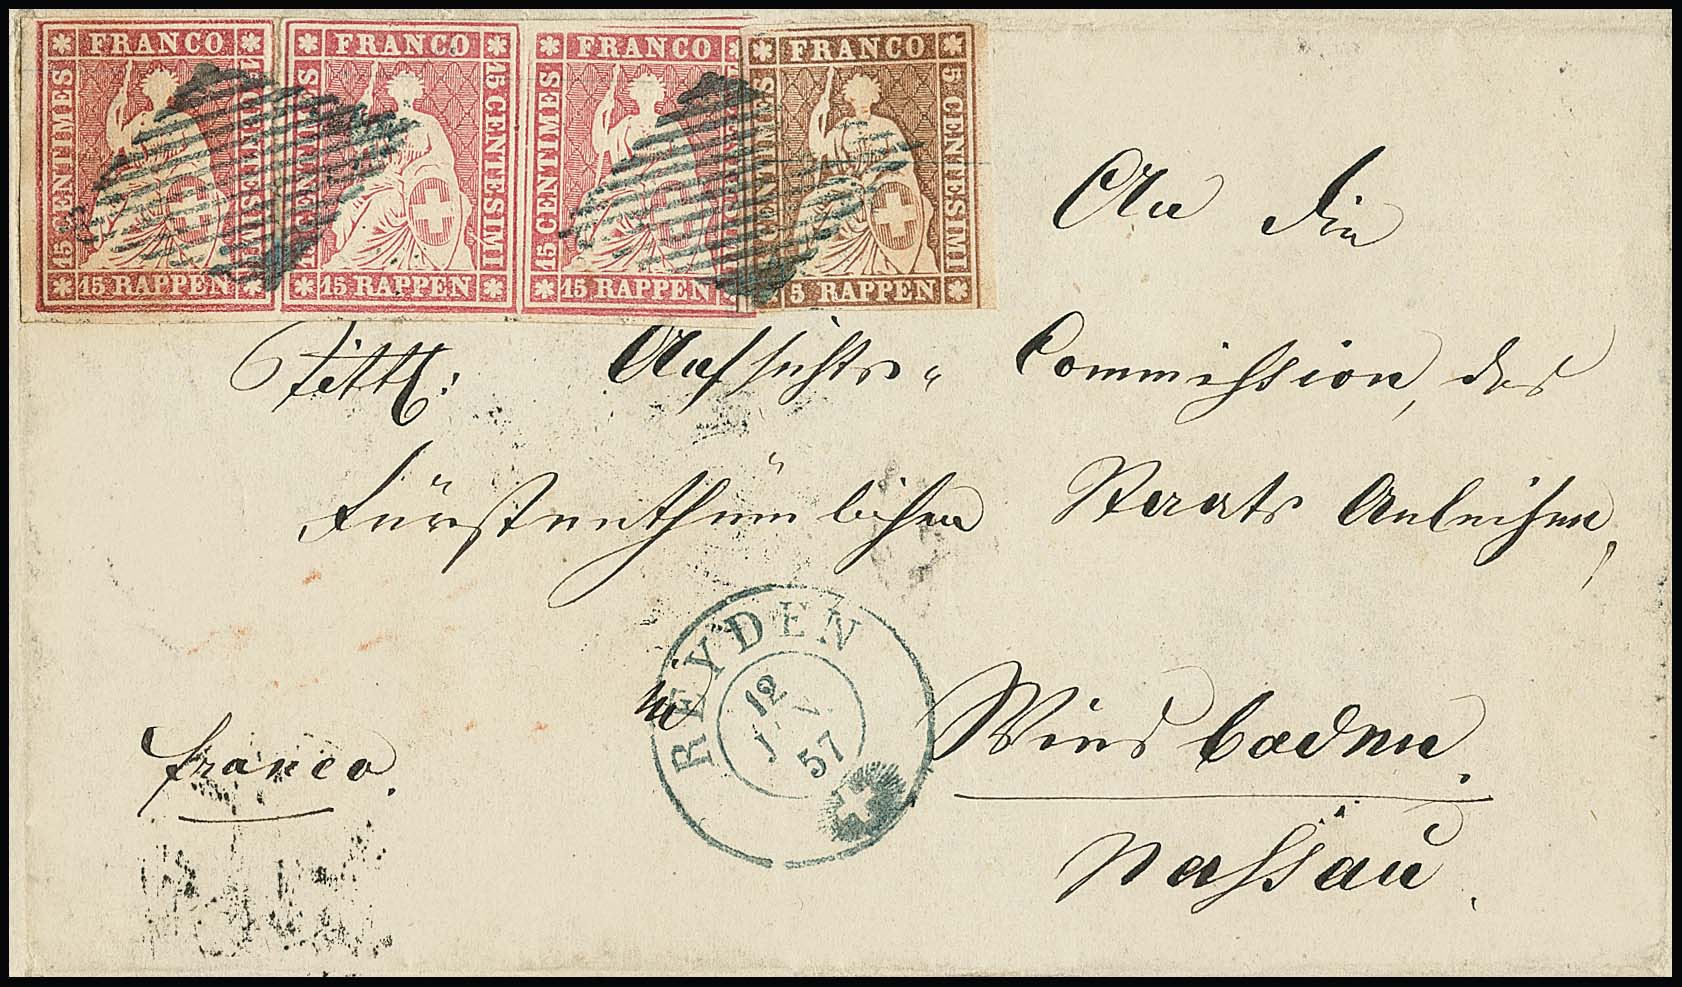 FRANCO FRANCO FRANCO FRANCO
15 CENTIMES 15 CENTESIMI 15 CENTIMES 15 CENTESIMI 15 CENTIMES 5 CENTESIMI
15 RAPPEN 15 RAPPEN 15 RAPPEN 5 RAPPEN
An die
Titl: Aufsichts- Commission, des
Fürstenthümlichen Staats Anleihen,
REYDEN
12
57
in Wiesbaden.
franco.
Nassau.